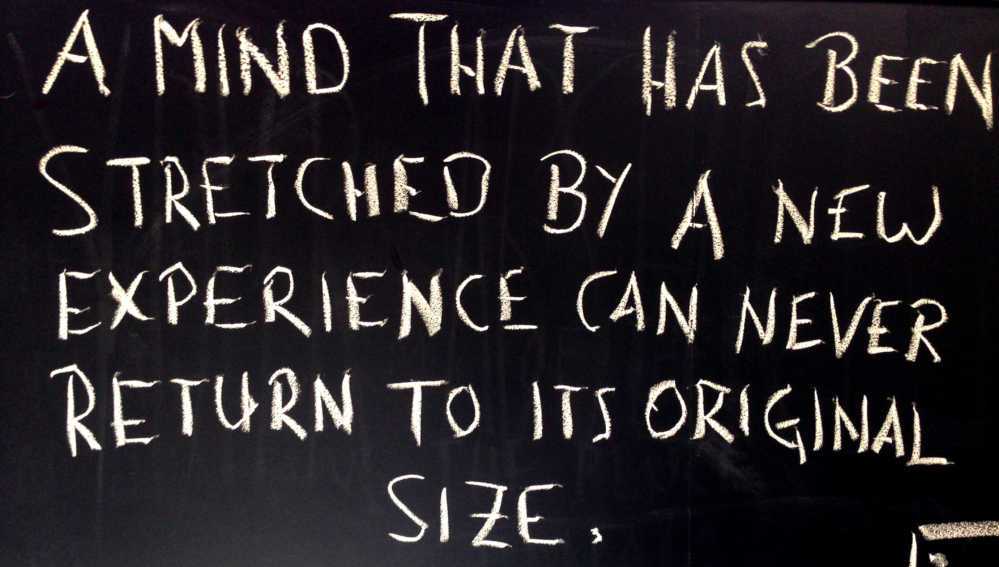 A MIND THAT HAS BEEN
STRETCHED BY A NEW
EXPERIENCE CAN NEVER
RETURN TO ITS ORIGINAL
SIZE.